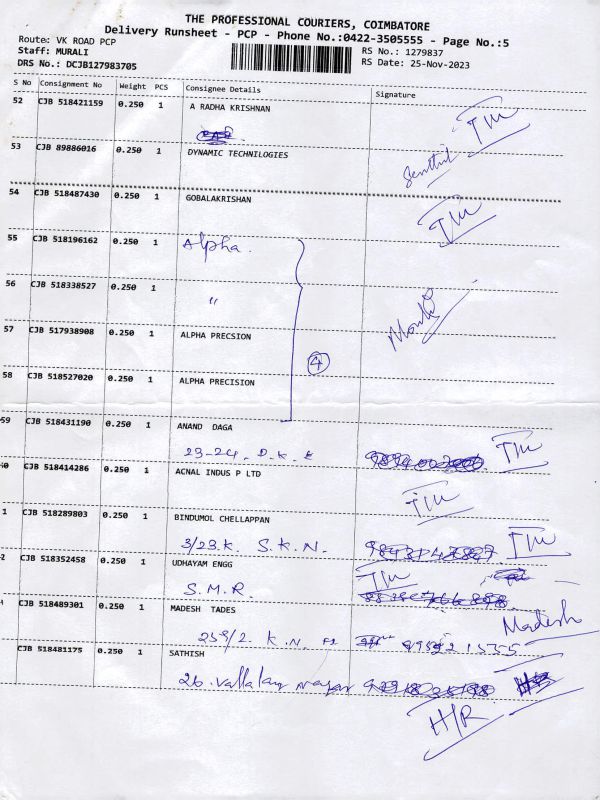 THE PROFESSIONAL COURIERS, COIMBATORE
Delivery Runsheet - PCP - Phone No.:0422-3505555 - Page No.:5
Route: VK ROAD PCP
Staff: MURALI
DRS No.: DCJB127983705
RS No.: 1279837
RS Date: 25-Nov-2023
S No Consignment No Weight PCS Consignee Details Signature
52 CJB 518421159 0.250 1 A RADHA KRISHNAN
53 CJB 89886016 0.250 1 DYNAMIC TECHNILOGIES
Senthil
54 CJB 518487430 0.250 1 GOBALAKRISHAN
55 CJB 518196162 0.250 1 Alpha
56 CJB 518338527 0.250 1 "
57 CJB 517938908 0.250 1 ALPHA PRECSION
4
58 CJB 518527020 0.250 1 ALPHA PRECISION
59 CJB 518431190 0.250 1 ANAND DAGA
23-24. D.K.
CJB 518414286 0.250 1 ACNAL INDUS P LTD
1 CJB 518289803 0.250 1 BINDUMOL CHELLAPPAN
3/23.K. S.K.N.
2 CJB 518352458 0.250 1 UDHAYAM ENGG
S.M.R.
CJB 518489301 0.250 1 MADESH TADES
259/2. K.N. Madesh
CJB 518481175 0.250 1 SATHISH
26. Vallalar nagar
H/R